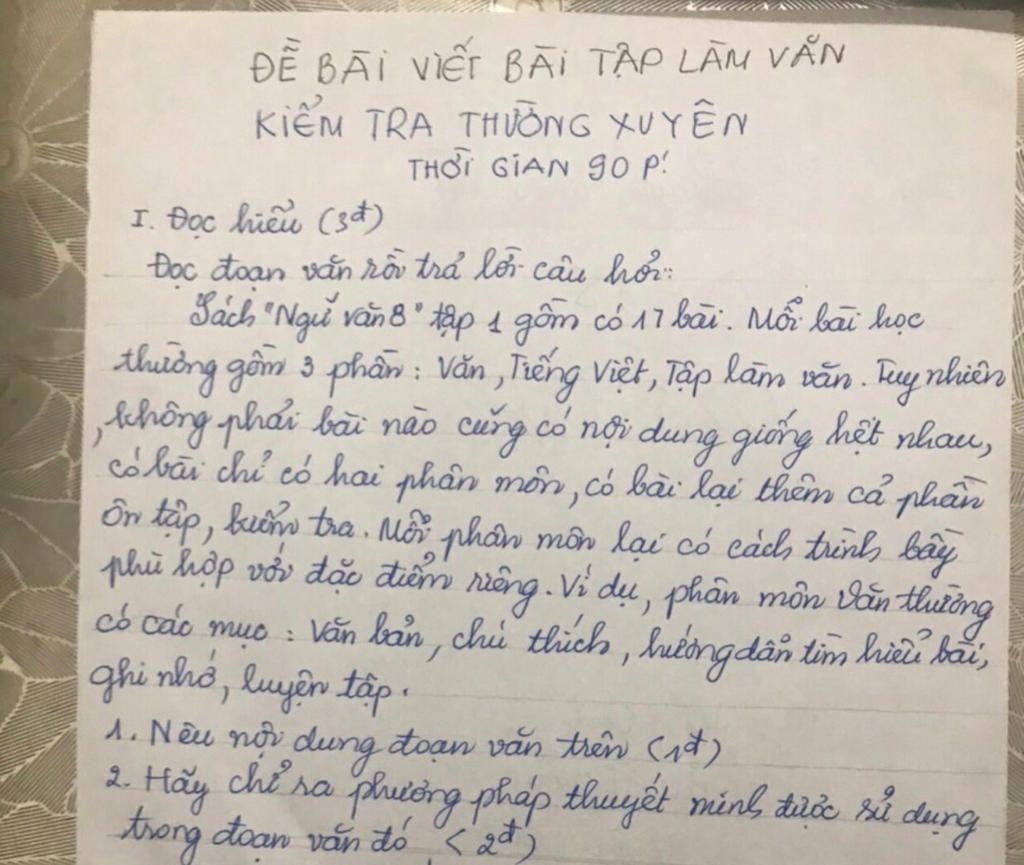 ĐỀ BÀI VIẾT BÀI TẬP LÀM VĂN
KIỂM TRA THƯỜNG XUYÊN
THỜI GIAN 90 P!
I. Đọc hiểu (3đ)
Đọc đoạn văn rồi trả lời câu hỏi:
Sách "Ngữ văn 8" tập 1 gồm có 17 bài. Mỗi bài học
thường gồm 3 phần: Văn, Tiếng Việt, Tập làm văn. Tuy nhiên
, không phải bài nào cũng có nội dung giống hệt nhau,
có bài chỉ có hai phân môn, có bài lại thêm cả phần
ôn tập, kiểm tra. Mỗi phân môn lại có cách trình bầy
phù hợp với đặc điểm riêng. Ví dụ, phân môn Văn thường
có các mục: Văn bản, chú thích, hướng dẫn tìm hiểu bài,
ghi nhớ, luyện tập.
1. Nêu nội dung đoạn văn trên (1đ)
2. Hãy chỉ ra phương pháp thuyết minh được sử dụng
trong đoạn văn đó (2đ)